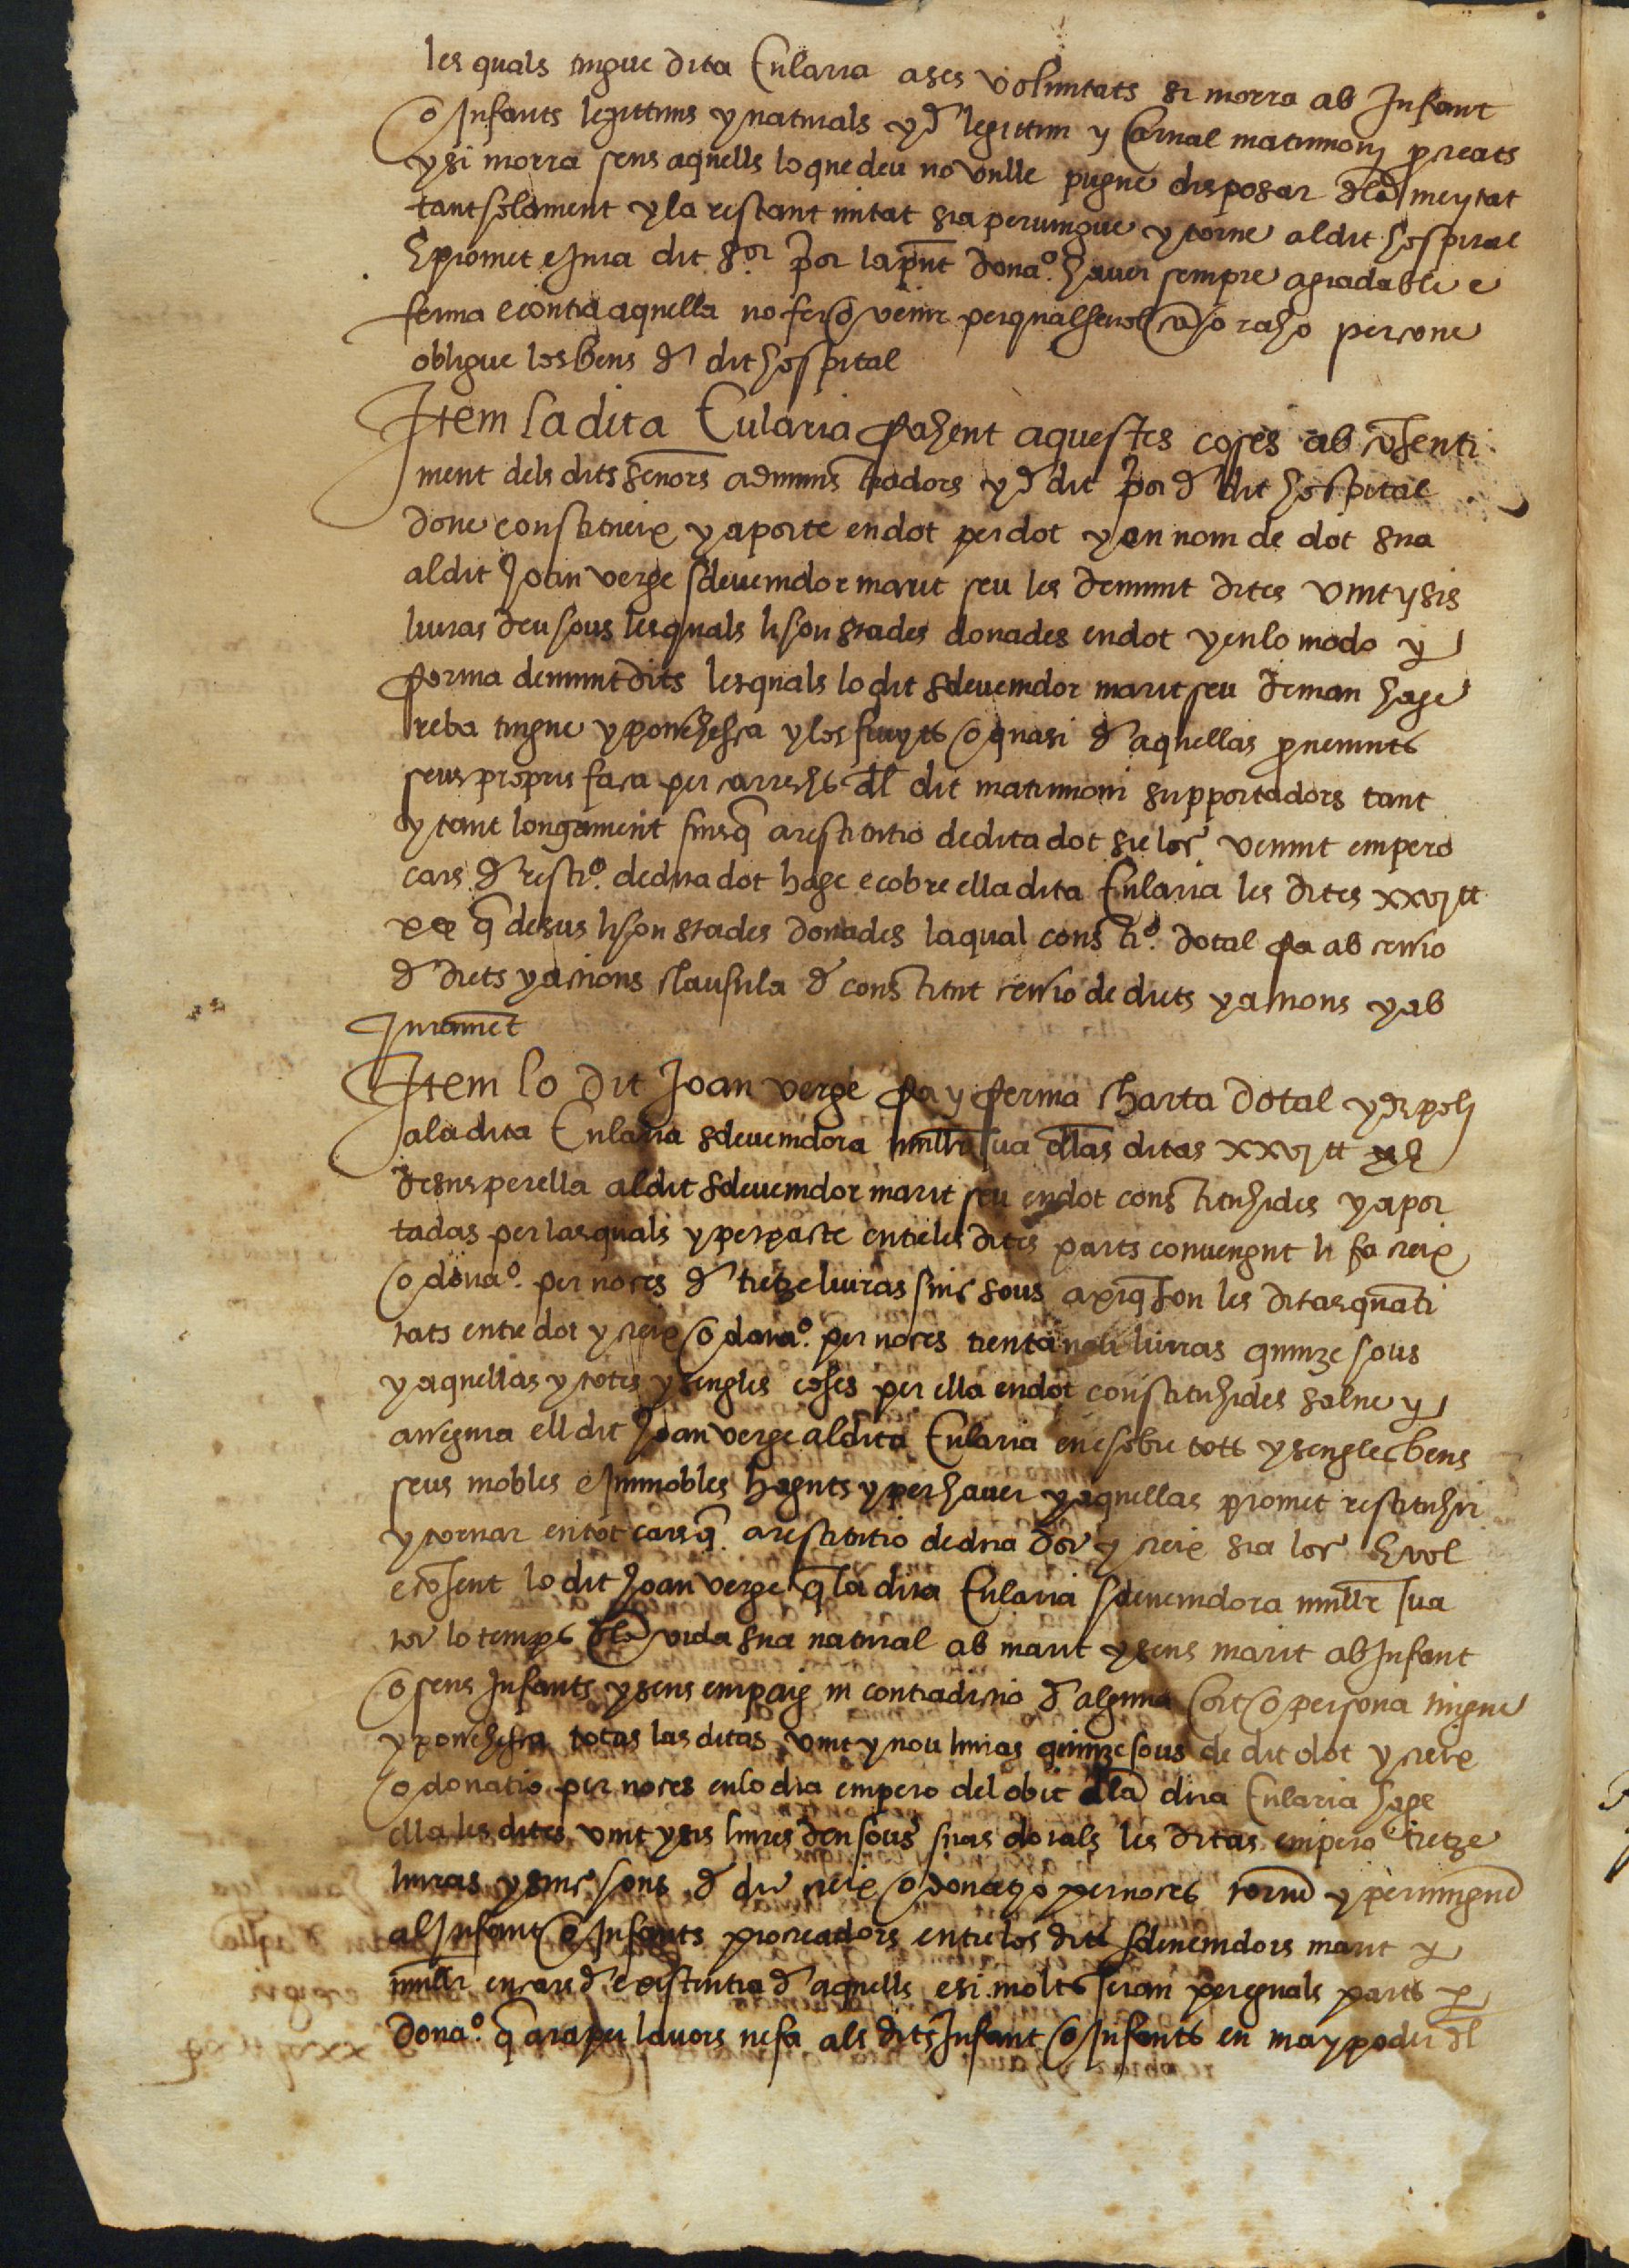 les quals tingue dita Eularia a ses voluntats si morra ab Infant
o Infants legittims y naturals y d legittim y Carnal matrimonj procreats
y si morra sens aquells lo que deu no vulle pugue disposar dla meytat
tant solament y la restant mitat sia pervingue y torne al dit hospital
E promet e Jura dit Sor. por la pnt dona.º haver sempre agradable e
ferma e contra aquella no fer o venir per qualsevol causa o raho per so ne
obligue los bens d dit hospital
Item la dita Eularia fahent aquestes coses ab cosenti
ment dels dits senors administradors y d dit por d dit hospital
done constitueix y aporte en dot per dot y en nom de dot sua
al dit Joan verge sdevemdor marit seu les demunt dites vint y sis
liuras deu sous les quals li son stades donades en dot y en lo modo y
forma demunt dits les quals lo dit sdevemdor marit seu deman hage
reba tingue y possehesca y los fruyts o quasi d aquellas provenints
seus propris faca per carrechs dl dit matrimoni supportadors tant
y tant longament fins q a restitutio de dita dot sie loc venint empero
cars d resti.º de dita dot hage e cobre ella dita Eularia les dites xxvj ℔
x q desus li son stades donades la qual consti.º dotal fa ab cessio
d drets y actions clausula d constitut cessio de drets y actions y ab
Jurament
Item lo dit Joan verge fa y ferma Charta dotal y d spolj
a la dita Eularia sdevemdora mullr sua dlas ditas xxvj ℔ x
desus per ella al dit sdevemdor marit seu en dot constituhides y apor
tadas per las quals y per pacte entre les dites parts convengut li fa creix
o dona.º per noces d tretze liuras sinc sous axi q son les ditas quati
tats entre dot y creix o dona.º per noces trenta nou liuras quinze sous
y aquellas y totes y sengles coses per ella en dot constituhides salve y
assegura ell dit Joan verge al dita Eularia en e sobre tots y sengles bens
seus mobles e Immobles haguts y per haver y aquellas promet restituhir
y tornar en tot cars q a restitutio de dita dot y creix sia loc E vol
e cosent lo dit Joan verge q la dita Eularia sdevemdora mullr sua
tot lo temps dla vida sua natural ab marit y sens marit ab Infant
o sens Infants y sens empaig ni contradictio d alguna Cort o persona tingue
y possehesca totas las ditas vint y nou liuras quinze sous de dit dot y creix
o donatio per noces en lo dia empero del obit dla dita Eularia hage
ella les dites vint y sis liures deu sous suas dotals les ditas empero tretze
liuras y sinc sous d dit creix o donacyo per noces torne y pervingue
al Infant o Infants procreadors entre los dits sdevemdors marit y
mullr en cars d existentia d aquells e si molts seran per eguals parts per
dona.º q ara per lavors ne fa als dits Infant o Infants en ma y poder dl